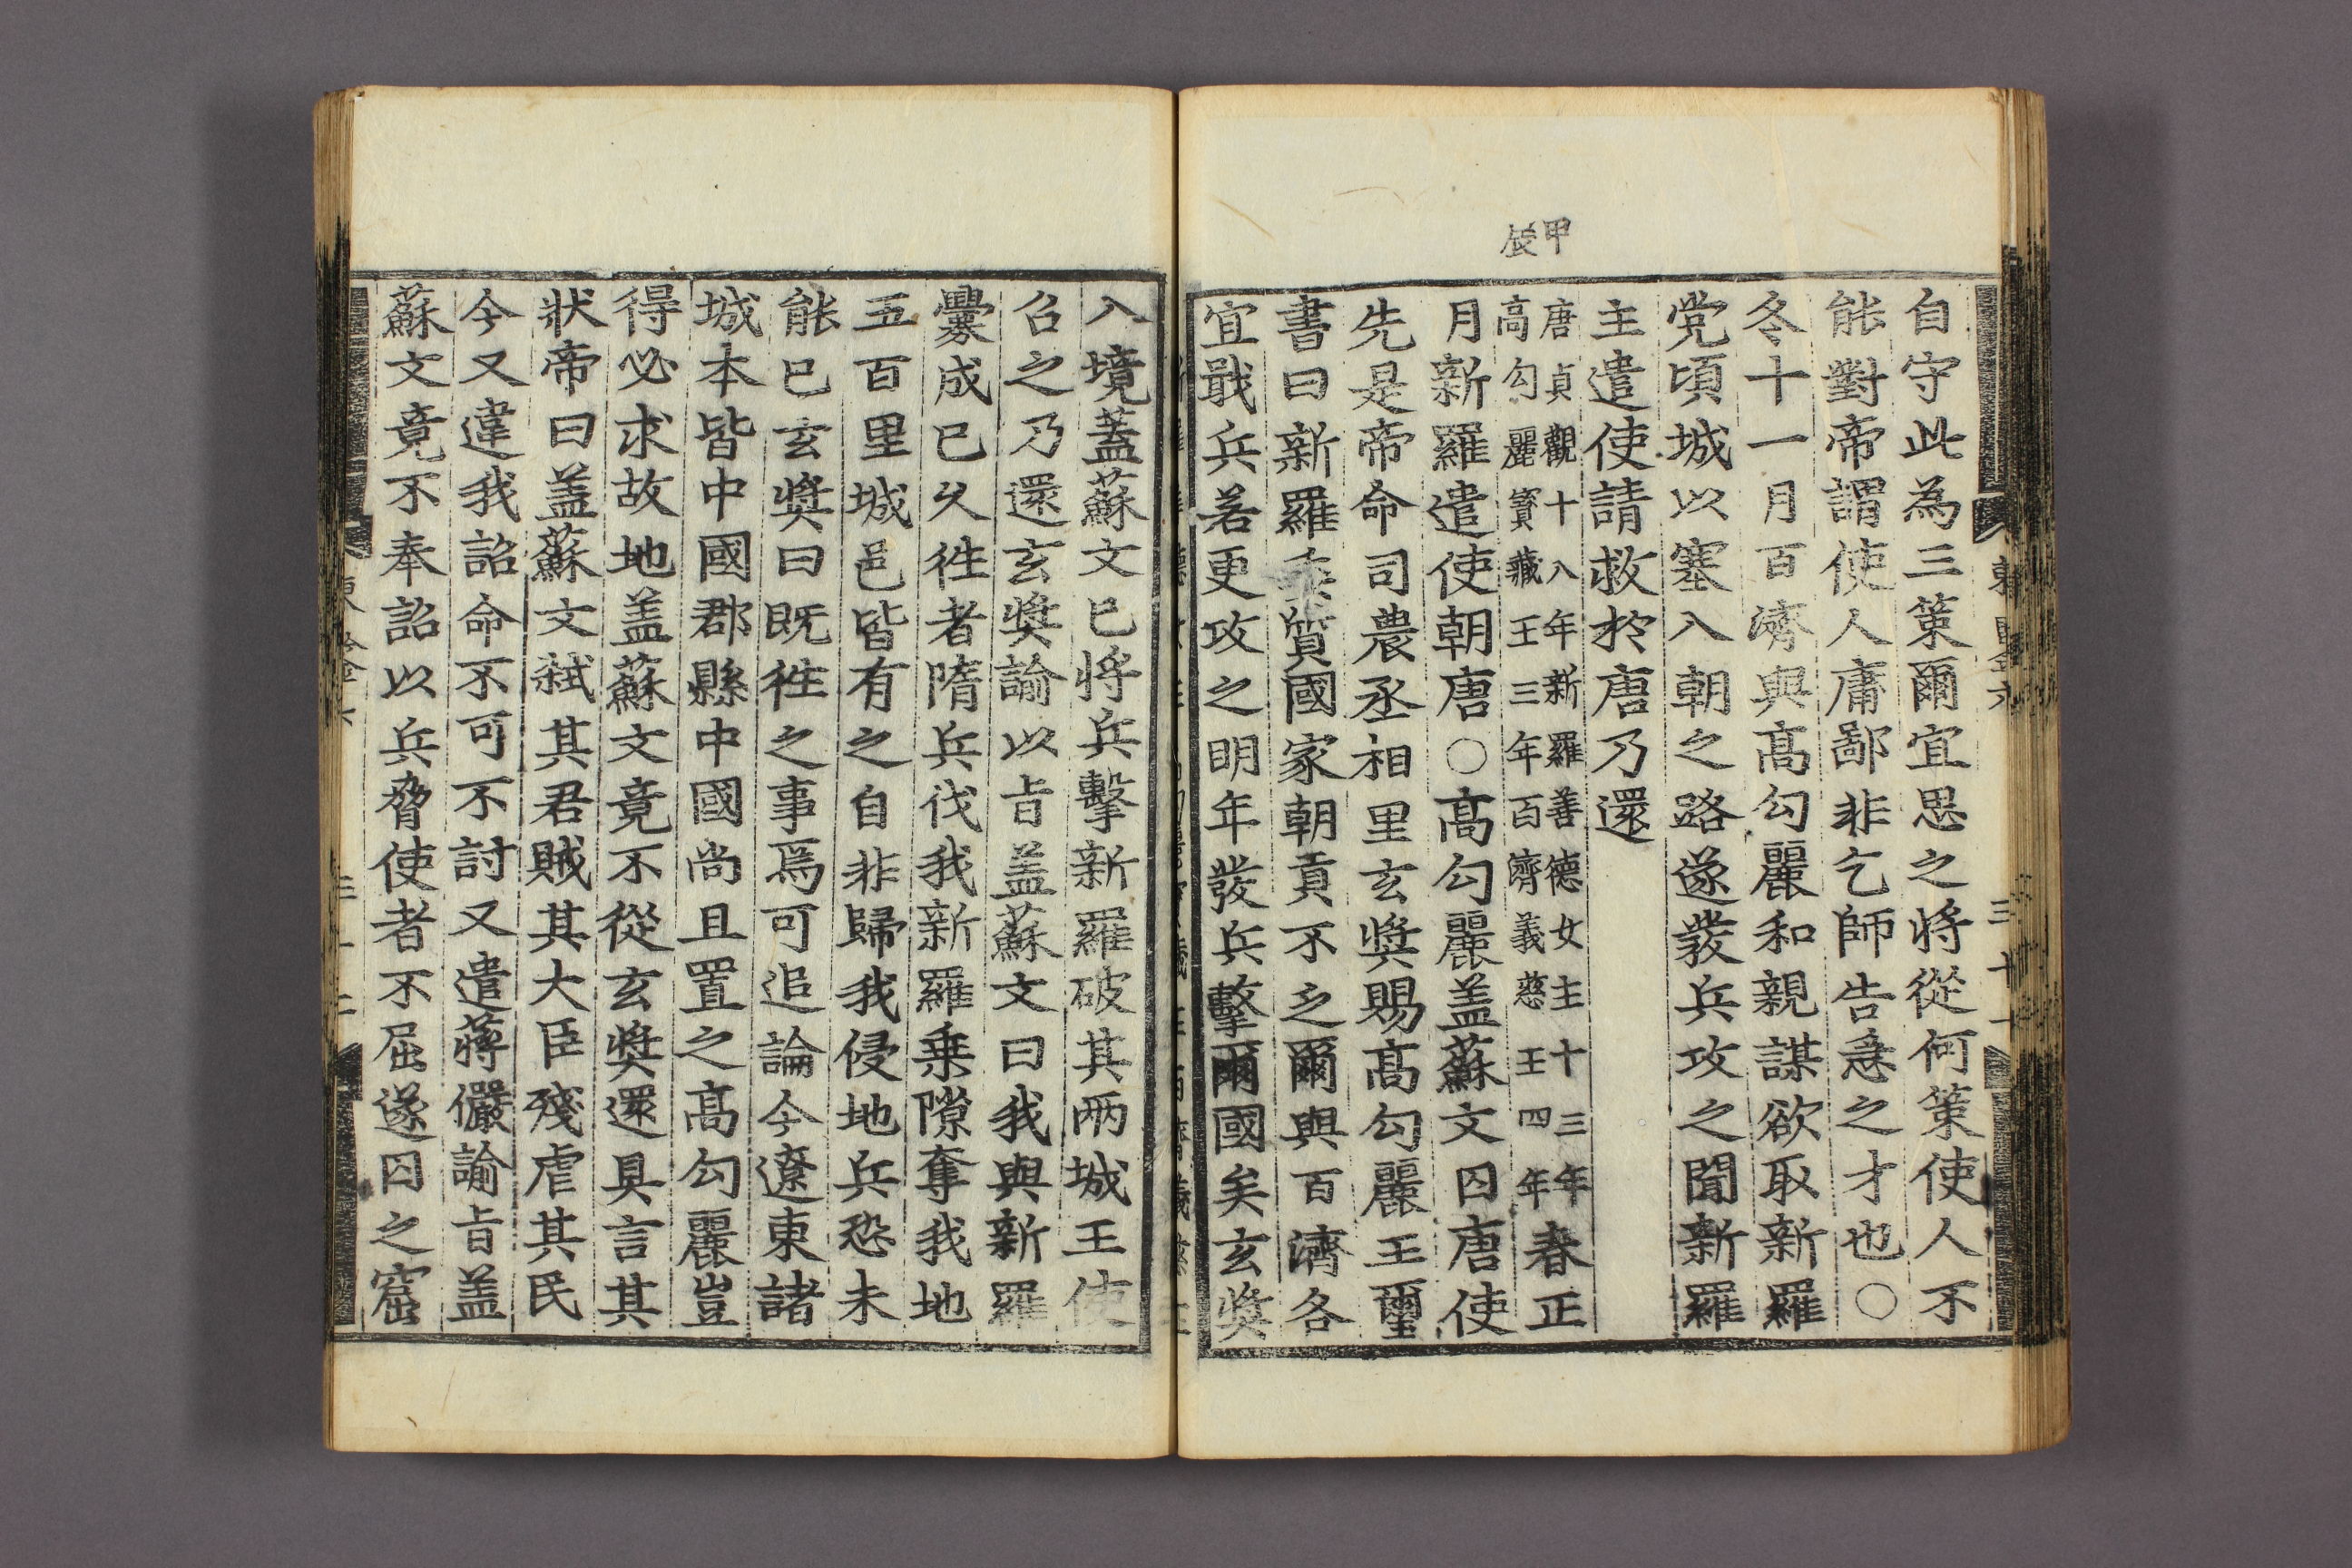 自守此為三策爾宜思之將從何策使人不
能對帝謂使人庸鄙非乞師告急之才也○
冬十一月百濟與髙勾麗和親謀欲取新羅
党頃城以塞入朝之路遂發兵攻之聞新羅
主遣使請救於唐乃還
甲辰
唐貞觀十八年新羅善德女主十三年
高勾麗寳藏王三年百濟義慈王四年
春正
月新羅遣使朝唐○髙勾麗盖蘇文囚唐使
先是帝命司農丞相里玄奬賜髙勾麗王璽
書曰新羅委質國家朝貢不乏爾與百濟各
宜戢兵若更攻之明年發兵擊爾國矣玄奬
入境蓋蘇文已將兵擊新羅破其兩城王使
召之乃還玄奬諭以㫖盖蘇文曰我與新羅
釁成已久徃者隋兵伐我新羅乗隙奪我地
五百里城邑皆有之自非歸我侵地兵恐未
能已玄奬曰既徃之事焉可追論今遼東諸
城本皆中國郡縣中國尚且置之髙勾麗豈
得必求故地盖蘇文竟不從玄奬還具言其
狀帝曰盖蘇文弑其君賊其大臣殘虐其民
今又違我詔命不可不討又遣蔣儼諭㫖盖
蘇文竟不奉詔以兵脅使者不屈遂囚之窟